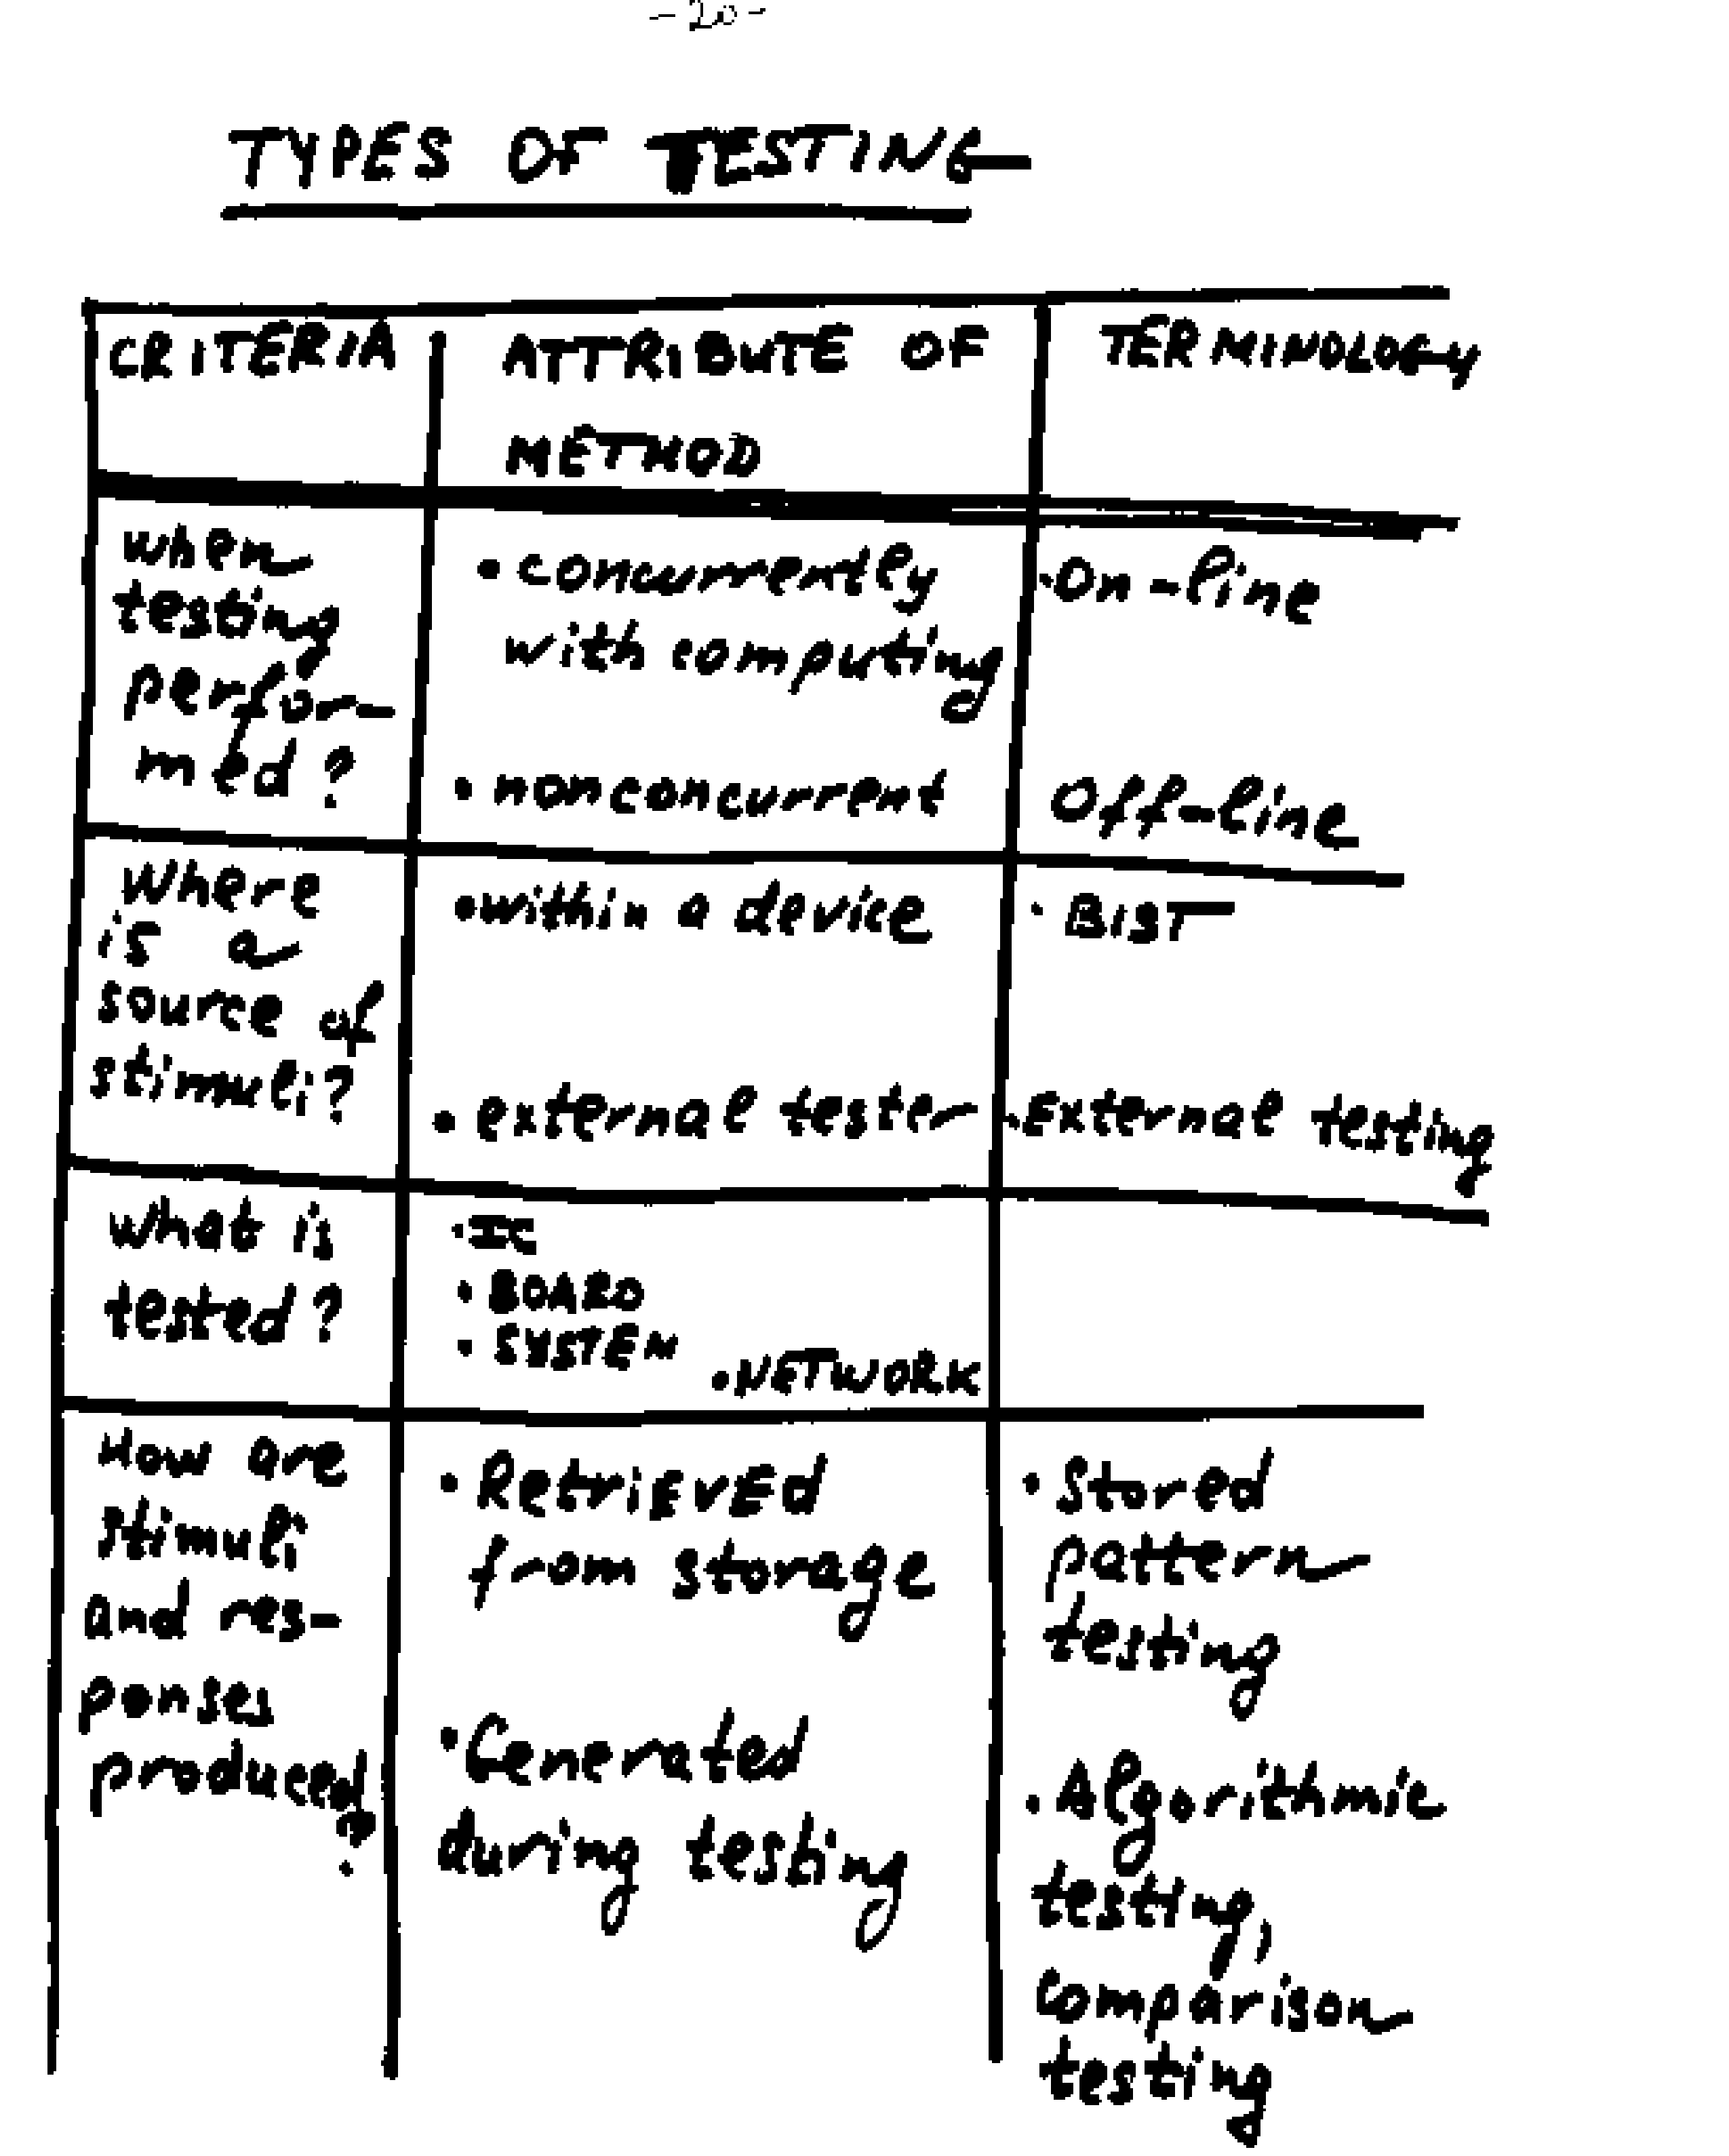 -20-
TYPES OF TESTING
CRITERIA
ATTRIBUTE OF
METHOD
TERMINOLOGY
when
testing
perfor-
med?
• concurrently
with computing
• nonconcurrent
• On-line
Off-line
Where
is a
source of
stimuli?
• within a device
• external tester
• BIST
• External testing
What is
tested?
• IC
• BOARD
• SYSTEM
• NETWORK
How are
stimuli
and res-
ponses
produced?
• RetriEvEd
from storage
• Generated
during testing
• Stored
pattern
testing
• Algorithmic
testing,
comparison
testing